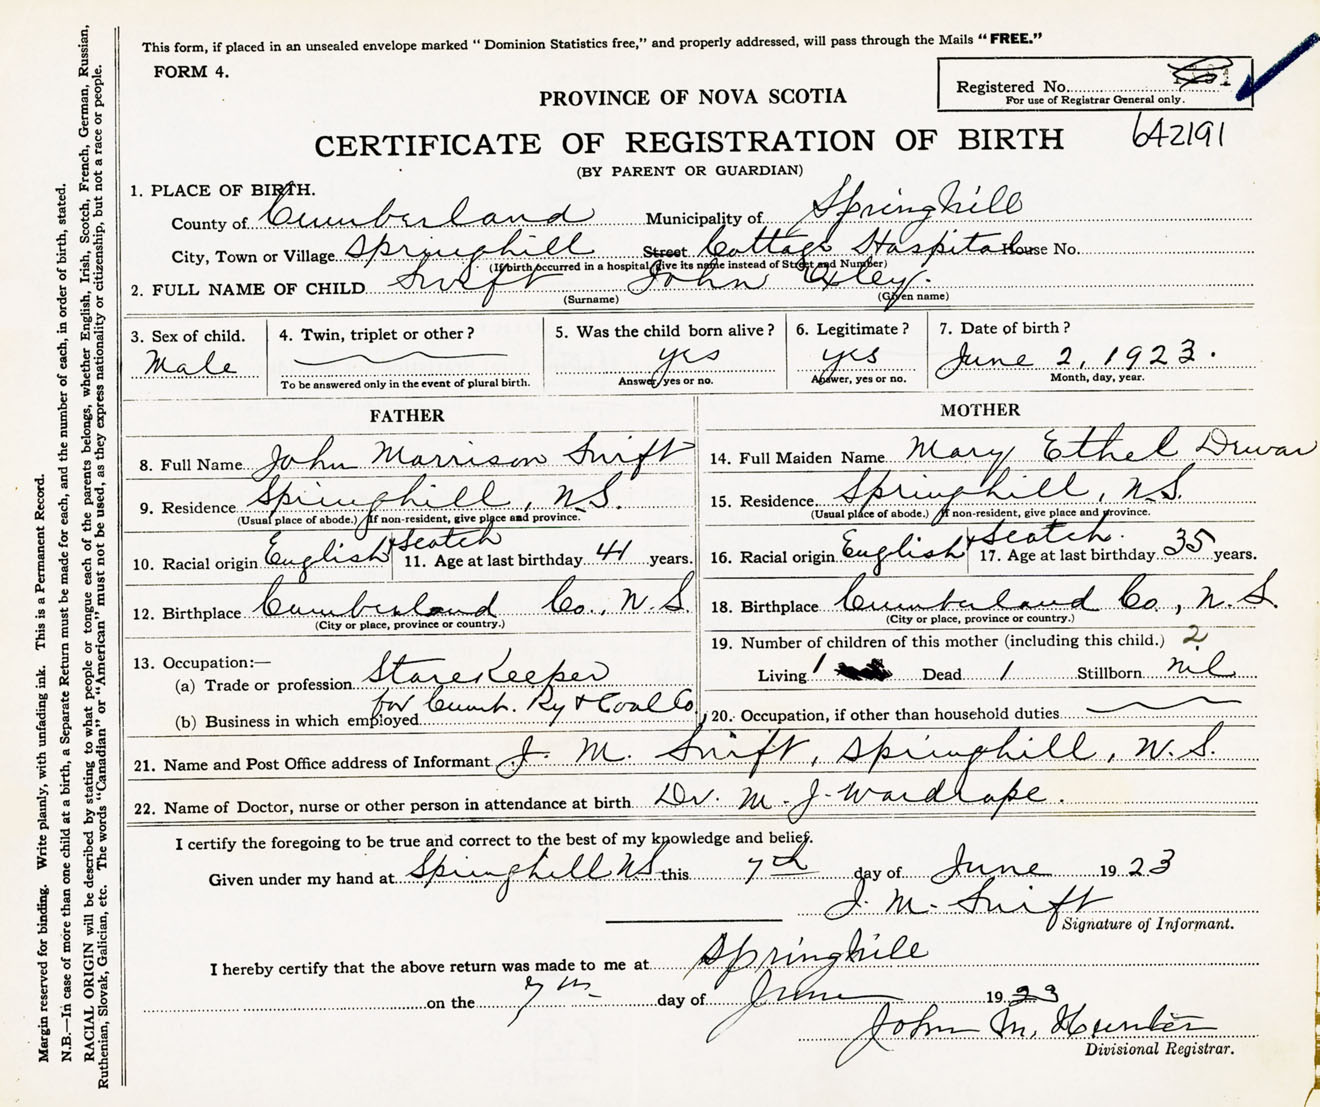 This form, if placed in an unsealed envelope marked "Dominion Statistics free," and properly addressed, will pass through the Mails "FREE."
FORM 4.
Registered No.
For use of Registrar General only.
PROVINCE OF NOVA SCOTIA
642191
CERTIFICATE OF REGISTRATION OF BIRTH
(BY PARENT OR GUARDIAN)
1. PLACE OF BIRTH.
County of Cumberland Municipality of Springhill
City, Town or Village Springhill Street Cottage Hospital House No.
(If birth occurred in a hospital give its name instead of Street and Number)
2. FULL NAME OF CHILD Swift John Oxley.
(Surname) (Given name)
3. Sex of child. 4. Twin, triplet or other? 5. Was the child born alive? 6. Legitimate? 7. Date of birth?
Male yes yes June 2, 1923.
To be answered only in the event of plural birth. Answer, yes or no. Answer, yes or no. Month, day, year.
FATHER MOTHER
8. Full Name John Morrison Swift 14. Full Maiden Name Mary Ethel
9. Residence Springhill, N.S. 15. Residence Springhill, N.S.
(Usual place of abode.) If non-resident, give place and province. (Usual place of abode.) If non-resident, give place and province.
10. Racial origin English + Scotch 11. Age at last birthday 41 years. 16. Racial origin English + Scotch. 17. Age at last birthday 35 years.
12. Birthplace Cumberland Co., N.S. 18. Birthplace Cumberland Co., N.S.
(City or place, province or country.) (City or place, province or country.)
13. Occupation:— 19. Number of children of this mother (including this child.) 2
(a) Trade or profession StoreKeeper Living 1 Dead 1 Stillborn nil
(b) Business in which employed for Cumb. Ry + Coal Co. 20. Occupation, if other than household duties
21. Name and Post Office address of Informant J. M. Swift, Springhill, N.S.
22. Name of Doctor, nurse or other person in attendance at birth Dr. M. J. Wardrope.
I certify the foregoing to be true and correct to the best of my knowledge and belief.
Given under my hand at Springhill NS this 7th day of June 1923
J. M. Swift
Signature of Informant.
I hereby certify that the above return was made to me at Springhill
on the 7th day of June 1923
John M. Hunter
Divisional Registrar.
Margin reserved for binding. Write plainly, with unfading ink. This is a Permanent Record.
N.B.—In case of more than one child at a birth, a Separate Return must be made for each, and the number of each, in order of birth, stated.
RACIAL ORIGIN will be described by stating to what people or tongue each of the parents belongs, whether English, Irish, Scotch, French, German, Russian,
Ruthenian, Slovak, Galician, etc. The words "Canadian" or "American" must not be used, as they express nationality or citizenship, but not a race or people.